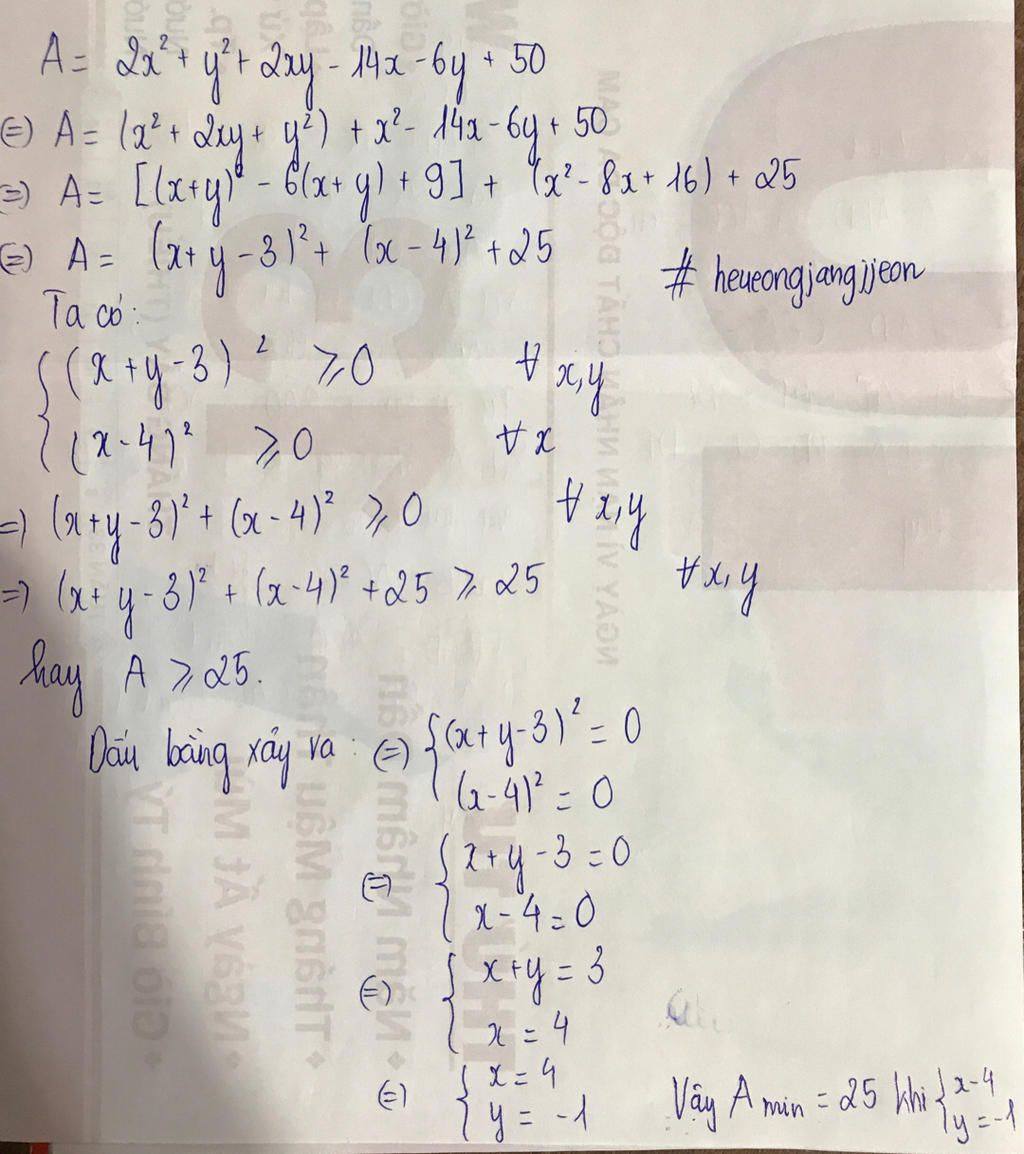 A = 2x² + y² + 2xy - 14x - 6y + 50
(=) A = (x² + 2xy + y²) + x² - 14x - 6y + 50
(=) A = [(x+y)² - 6(x+y) + 9] + (x² - 8x + 16) + 25
(=) A = (x+y-3)² + (x-4)² + 25
# heueongjangjjeon
Ta có:
{ (x+y-3)² ⩾ 0 ∀ x,y
(x-4)² ⩾ 0 ∀ x
=) (x+y-3)² + (x-4)² ⩾ 0 ∀ x,y
=) (x+y-3)² + (x-4)² + 25 ⩾ 25 ∀ x,y
hay A ⩾ 25.
Dấu bằng xảy ra: (=) { (x+y-3)² = 0
(x-4)² = 0
(=) { x+y-3 = 0
x-4 = 0
(=) { x+y = 3
x = 4
(=) { x = 4
y = -1
Vậy A min = 25 khi { x-4
y = -1